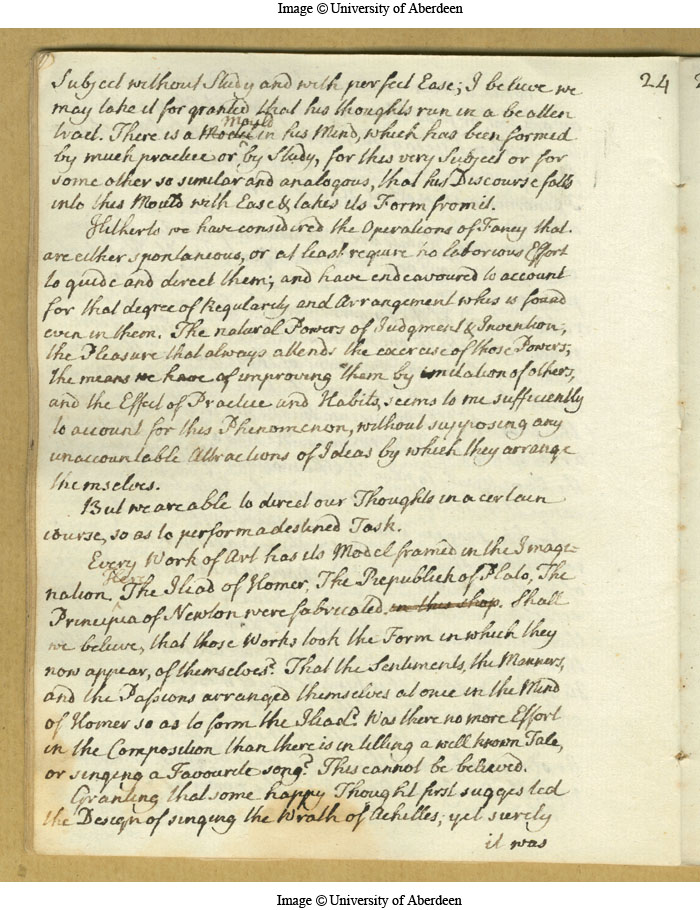 Image © University of Aberdeen
24
Subject without Study and with perfect Ease; I believe we
may take it for granted that his thoughts run in a beatten
tract. There is a Model Mould in his Mind, which has been formed
by much practice or by Study, for this very Subject or for
some other so similar and analogous, that his Discourse falls
into this Mould with Ease & takes its Form from it.
Hitherto we have considered the Operations of Fancy that
are either spontaneous, or at least require no laborious Effort
to guide and direct them; and have endeavoured to account
for that degree of Regularity and Arrangement whis is found
even in them. The natural Powers of Judgment & Invention;
the Pleasure that always attends the exercise of those Powers;
the means we have of improving them by imitation of others,
and the Effect of Practice and Habits, seems to me sufficiently
to account for this Phenomenon, without supposing any
unaccountable Attractions of Ideas by which they arrange
themselves.
But we are able to direct our Thoughts in a certain
course, so as to perform a destined Task.
Every Work of Art has its Model framed in the Imagi=
nation. Here The Iliad of Homer, The Republick of Plato, The
Principia of Newton were fabricated in this shop. Shall
we believe, that those Works took the Form in which they
now appear, of themselves? That the Sentiments, the Manners,
and the Passions arranged themselves at once in the Mind
of Homer so as to form the Iliad? Was there no more Effort
in the Composition than there is in telling a well known Tale,
or singing a Favourite song? This cannot be believed.
Granting that some happy Thought first suggested
the Design of singing the Wrath of Achilles; yet surely
it was
Image © University of Aberdeen